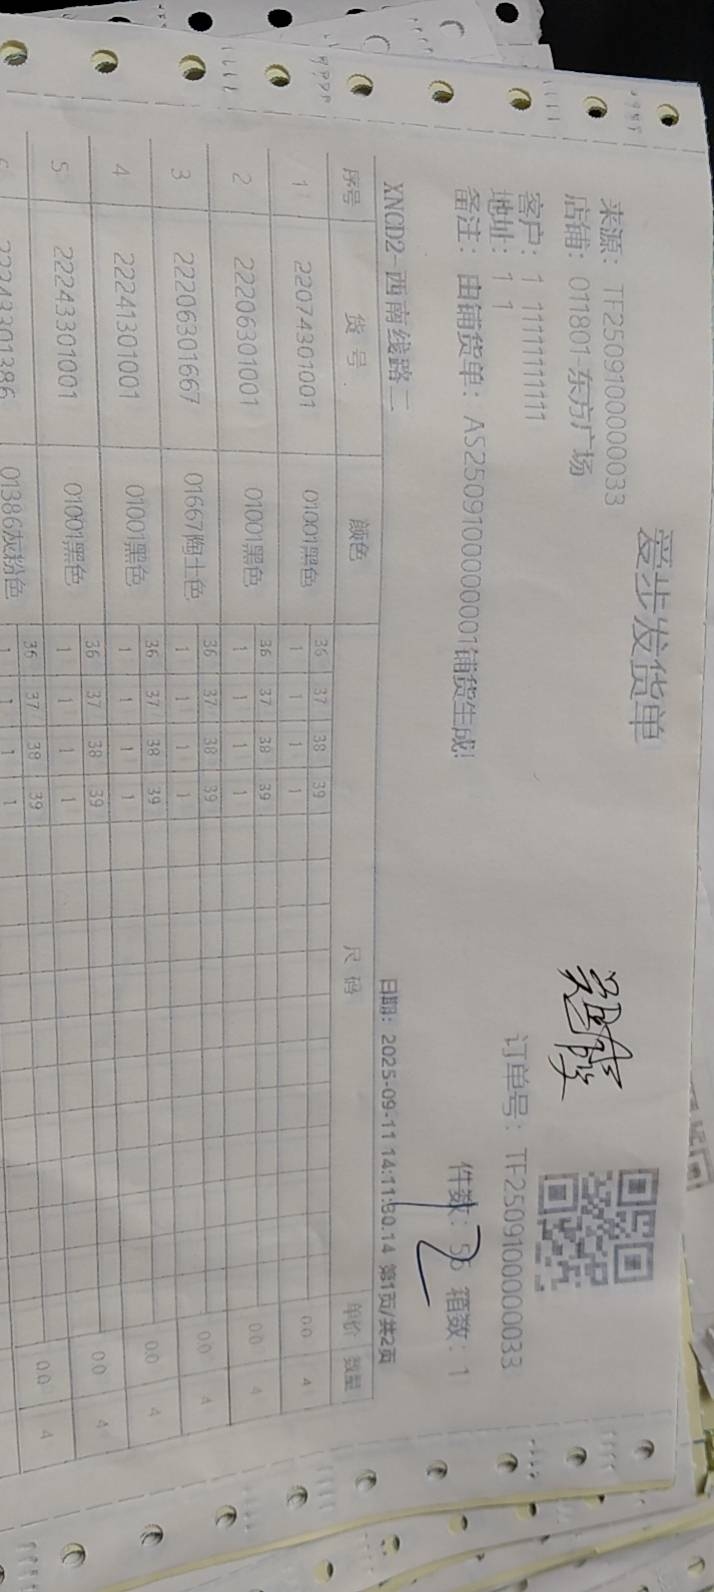 爱步发货单
来源: TF2509100000033
店铺: 011801 东方广场
订单号: TF2509100000033
客户: 1 11111111111
地址: 1 1
备注: 由铺货单: AS2509100000001铺货生成!
件数: 56 箱数: 1
XNCD2-西南线路二
日期: 2025-09-11 14:11:30.14 第1页/共2页
序号 货号 颜色 尺码 单价 数量
36 37 38 39
1 22074301001 01001黑色 1 1 1 1 0.0 4
36 37 38 39
2 22206301001 01001黑色 1 1 1 1 0.0 4
36 37 38 39
3 22206301667 01667陶土色 1 1 1 1 0.0 4
36 37 38 39
4 22241301001 01001黑色 1 1 1 1 0.0 4
36 37 38 39
5 22243301001 01001黑色 1 1 1 1 0.0 4
36 37 38 39
6 22243301386 01386灰粉色 1 1 1 1